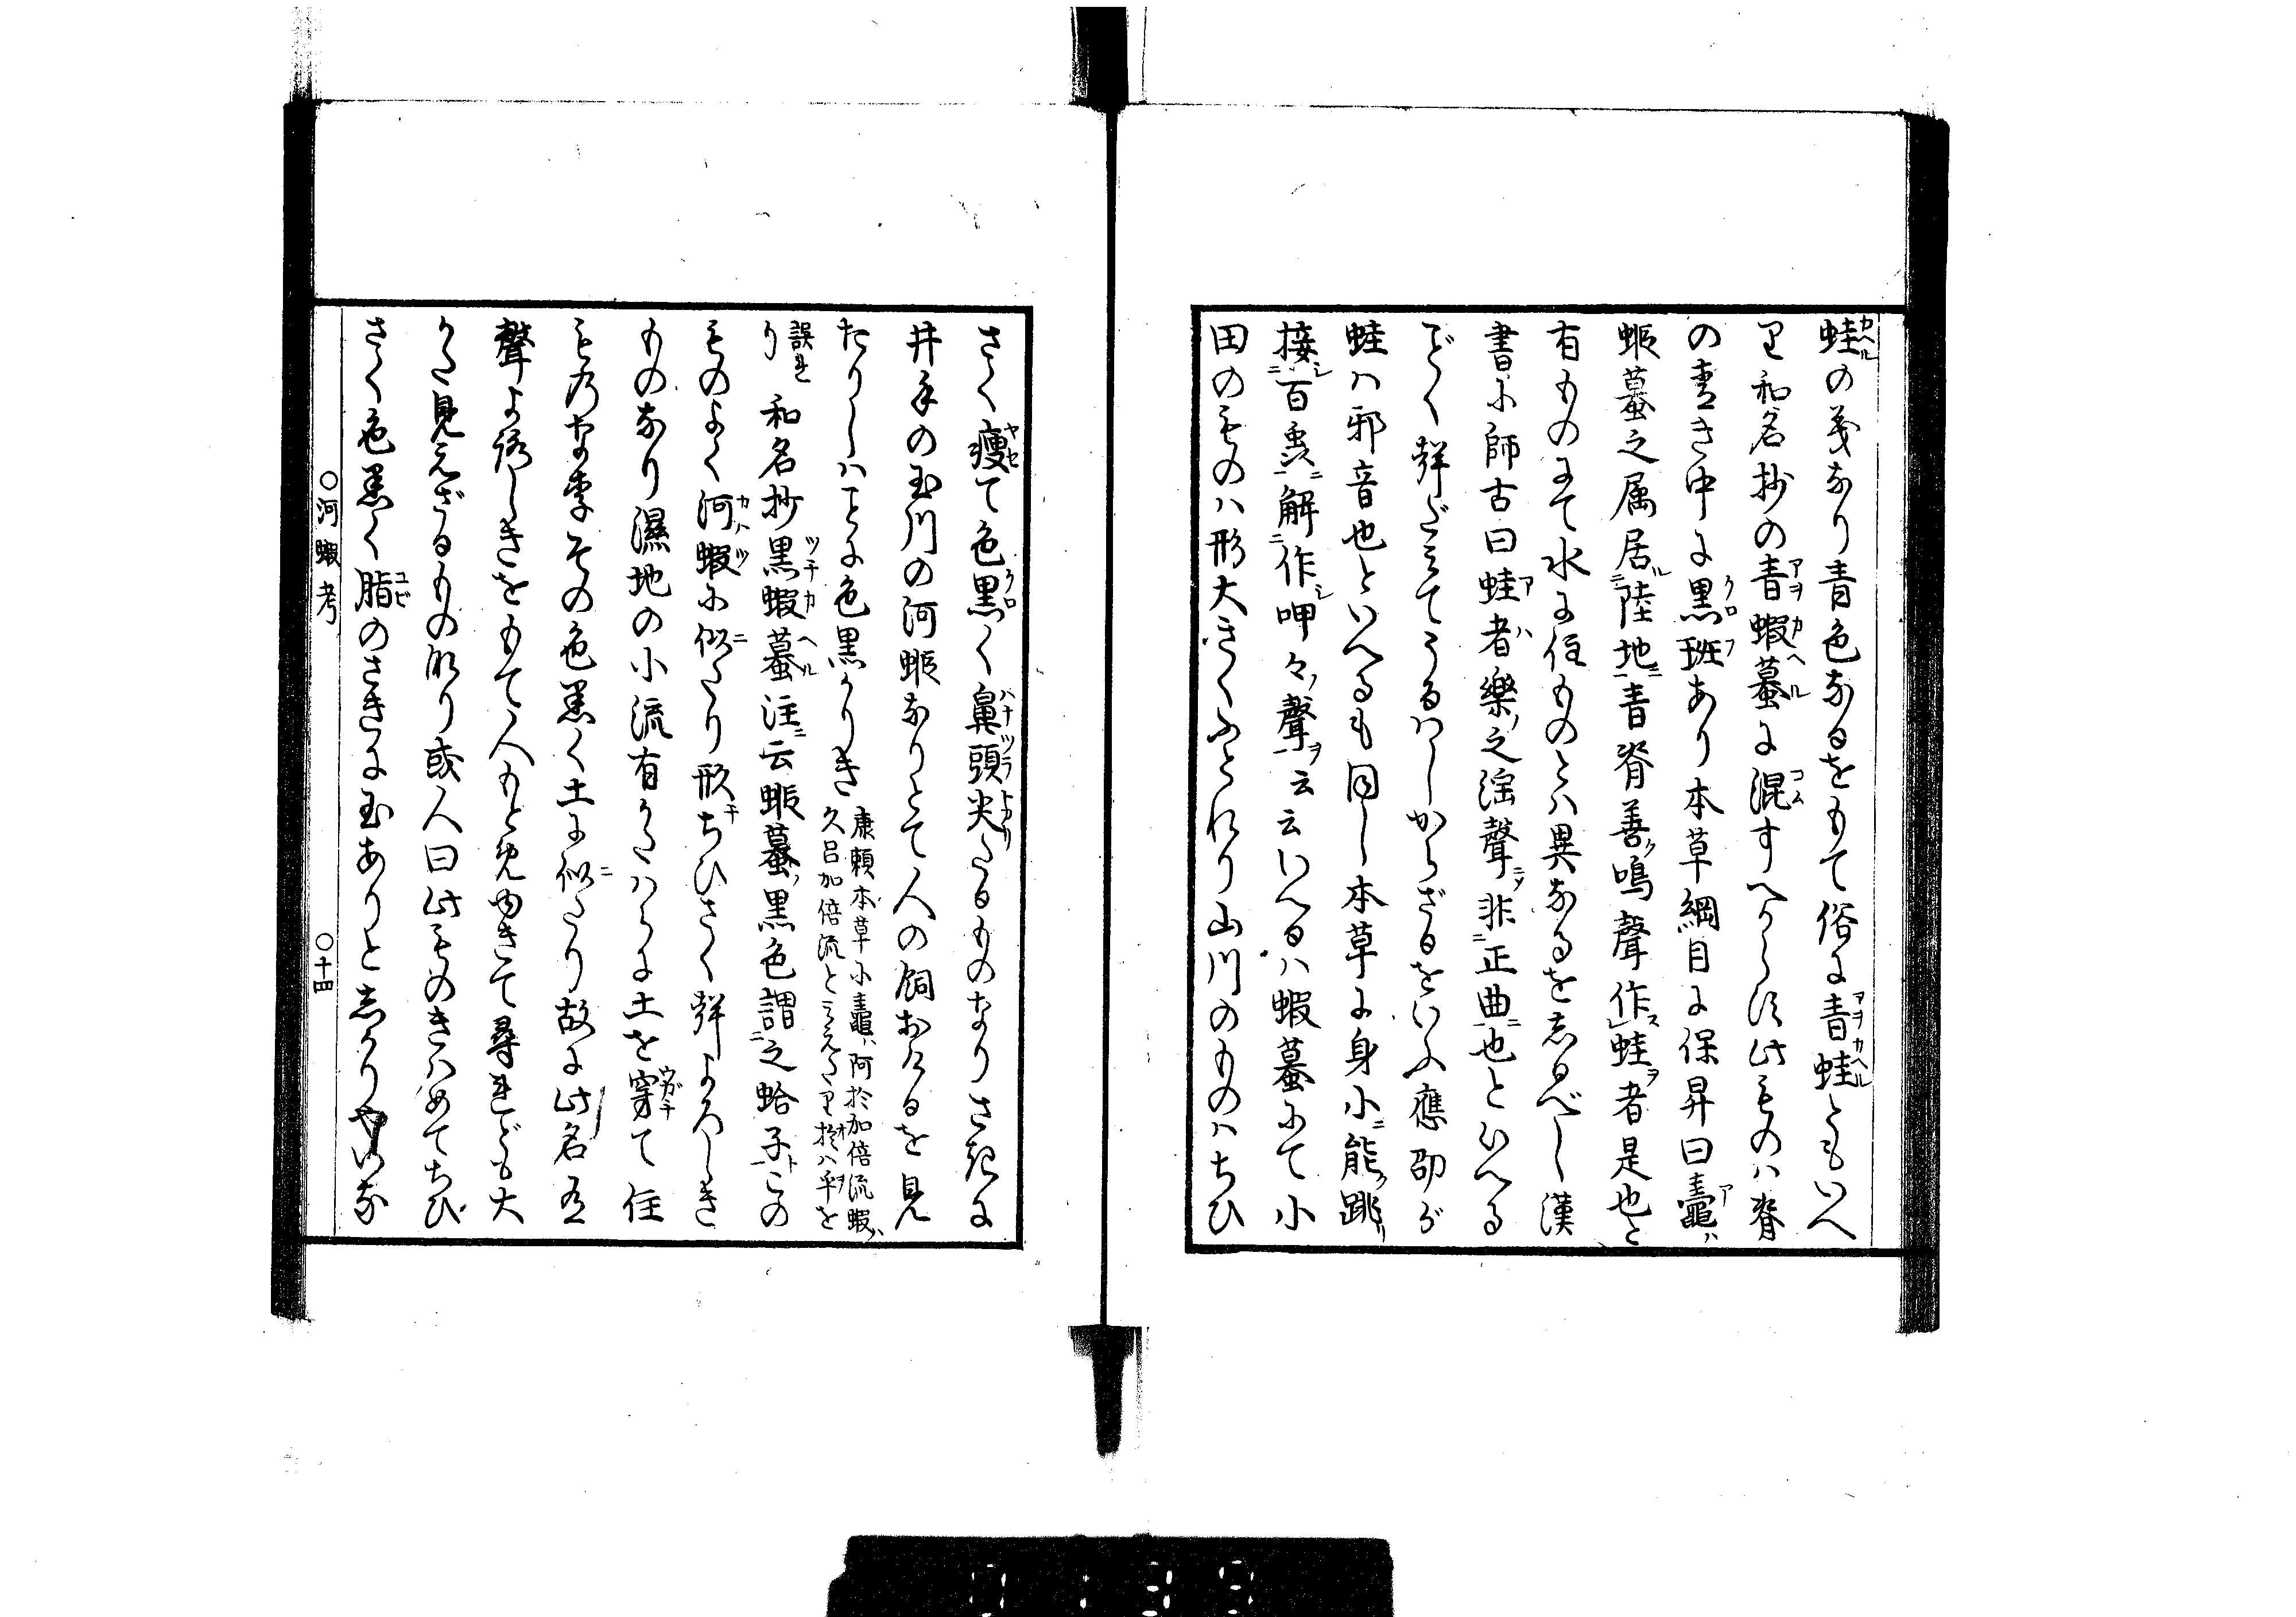 蛙の義なり青色なるをもて俗に青蛙ともいへ
り和名抄の青蝦蟇に混すへからす此ものハ脊
の青き中に黒斑あり本草綱目に保昇曰鼃ハ
蝦蟇之属居陸地青脊善鳴聲作蛙者是也と
有ものにて水に住ものとハ異なるを志るべし漢
書に師古曰蛙者樂之淫聲非正曲也といへる
蛙ハ邪音也といへるも同し本草に身小能跳
接百虫解作呷々聲云云いへるハ蝦蟇にて小
田のものハ形大きくふとれり山川のものハちひ
さく痩て色黒く鼻頭尖たるものなりさきに
井手の玉川の河蝦なりとて人の飼おけるを見
たりしハことに色黒かりき康頼本草小鼃阿於加倍流蝦ハ
久呂加倍流と云えたり於ハ乎を
誤れ
り和名抄黒蝦蟇注云蝦蟇黒色謂之蛤子この
ものよく河蝦に似たり形ちひさく声よろしき
ものなり濕地の小流有かたハらに土を穿て住
その色黒く土に似たり故に此名
聲よろしきをもて人もとめゆきて尋れども大
かた見えざるものなり或人曰此ものきハめてちひ
さく色黒く脂のさきに玉ありと志かりやいな
○河蝦考
○十四